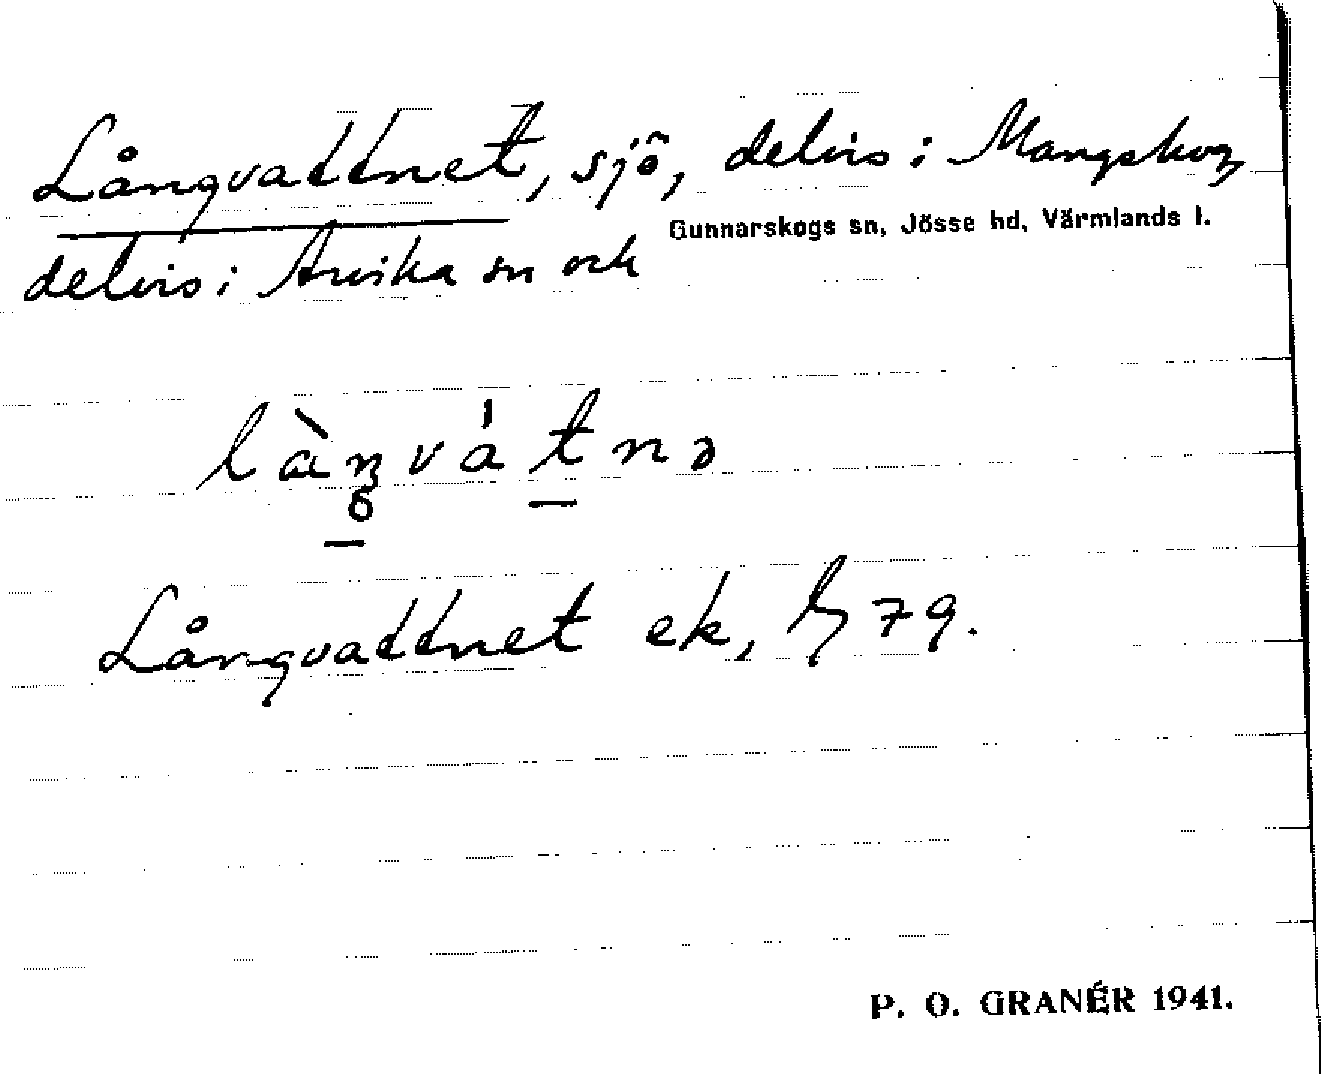 Långvattnet, sjö, delvis i Mangskog
delvis i Arvika sn och Gunnarskogs sn, Jösse hd, Värmlands l.
Långvattnet ek, 79.
P. O. GRANÉR 1941.